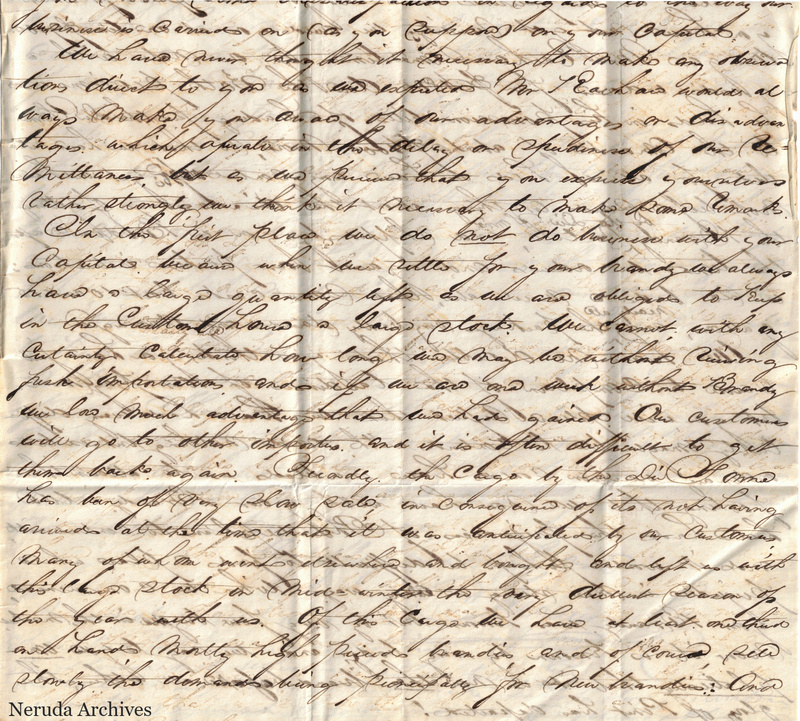 business is carried on (as you suppose) on your Capital.
We have never thought it necessary to make any observa
tions direct to you as we expected Mr would al
ways make you aware of our advantages or disadvan
tages which operate in the delay or speediness of our Re=
mittances but as we perceive that you express yourselves
rather strongly we think it necessary to make some remarks.
In the first place we do not do business with your
Capital because when we settle for your brandy we always
have a large quantity left as we are obliged to keep
in the Custom house a large stock. We cannot with any
certainty calculate how long we may be without receiving
fresh importations and if we are one week without Brandy
we lose much advantage that we had gained. Our customers
will go to other importers and it is often difficult to get
them back again. Secondly the Cargo by the
has been of very slow sale in consequence of its not having
arrived at the time that it was anticipated by our Customers
many of whom went elsewhere and bought and left us with
this large stock in Mid-winter the very dullest season of
the year with us. Of this Cargo we have at least one third
on hand mostly high priced brandies and of course sell
slowly the demand being principally for New brandies: And
Neruda Archives